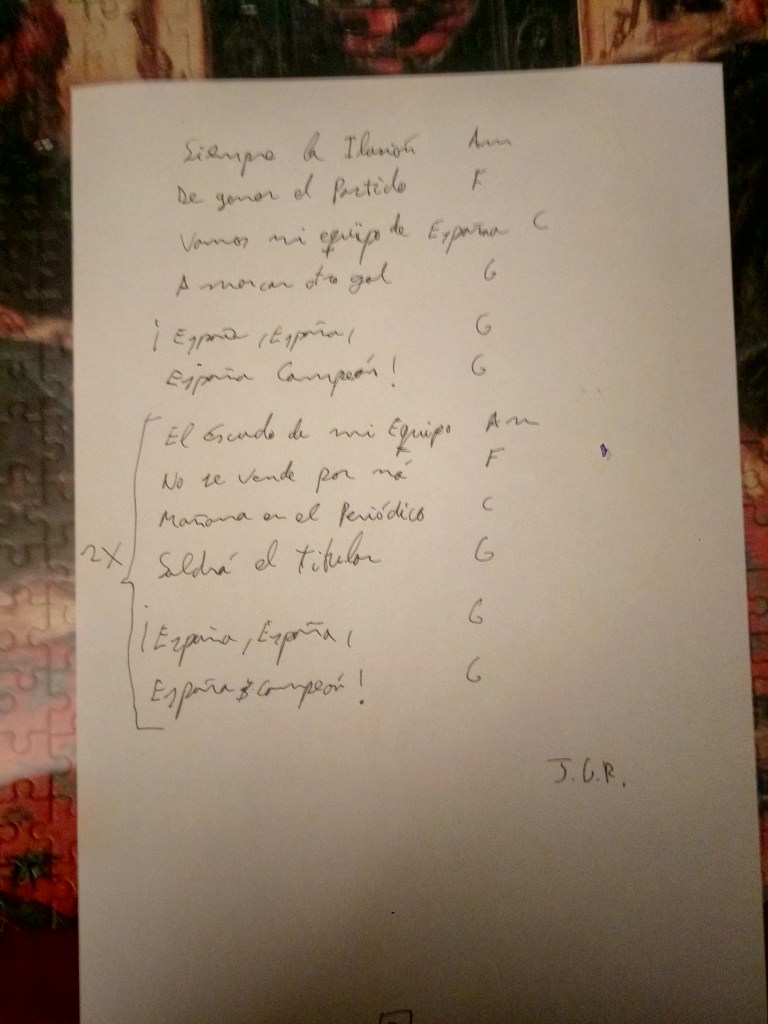 Siempre la Ilusión Am
De ganar el Partido F
Vamos mi equipo de España C
A marcar otro gol G
¡España, España, G
España Campeón! G
El Escudo de mi Equipo Am
No se vende por ná F
Mañana en el Periódico C
2X
Saldrá el titular G
¡España, España, G
España campeón! G
J.G.R.